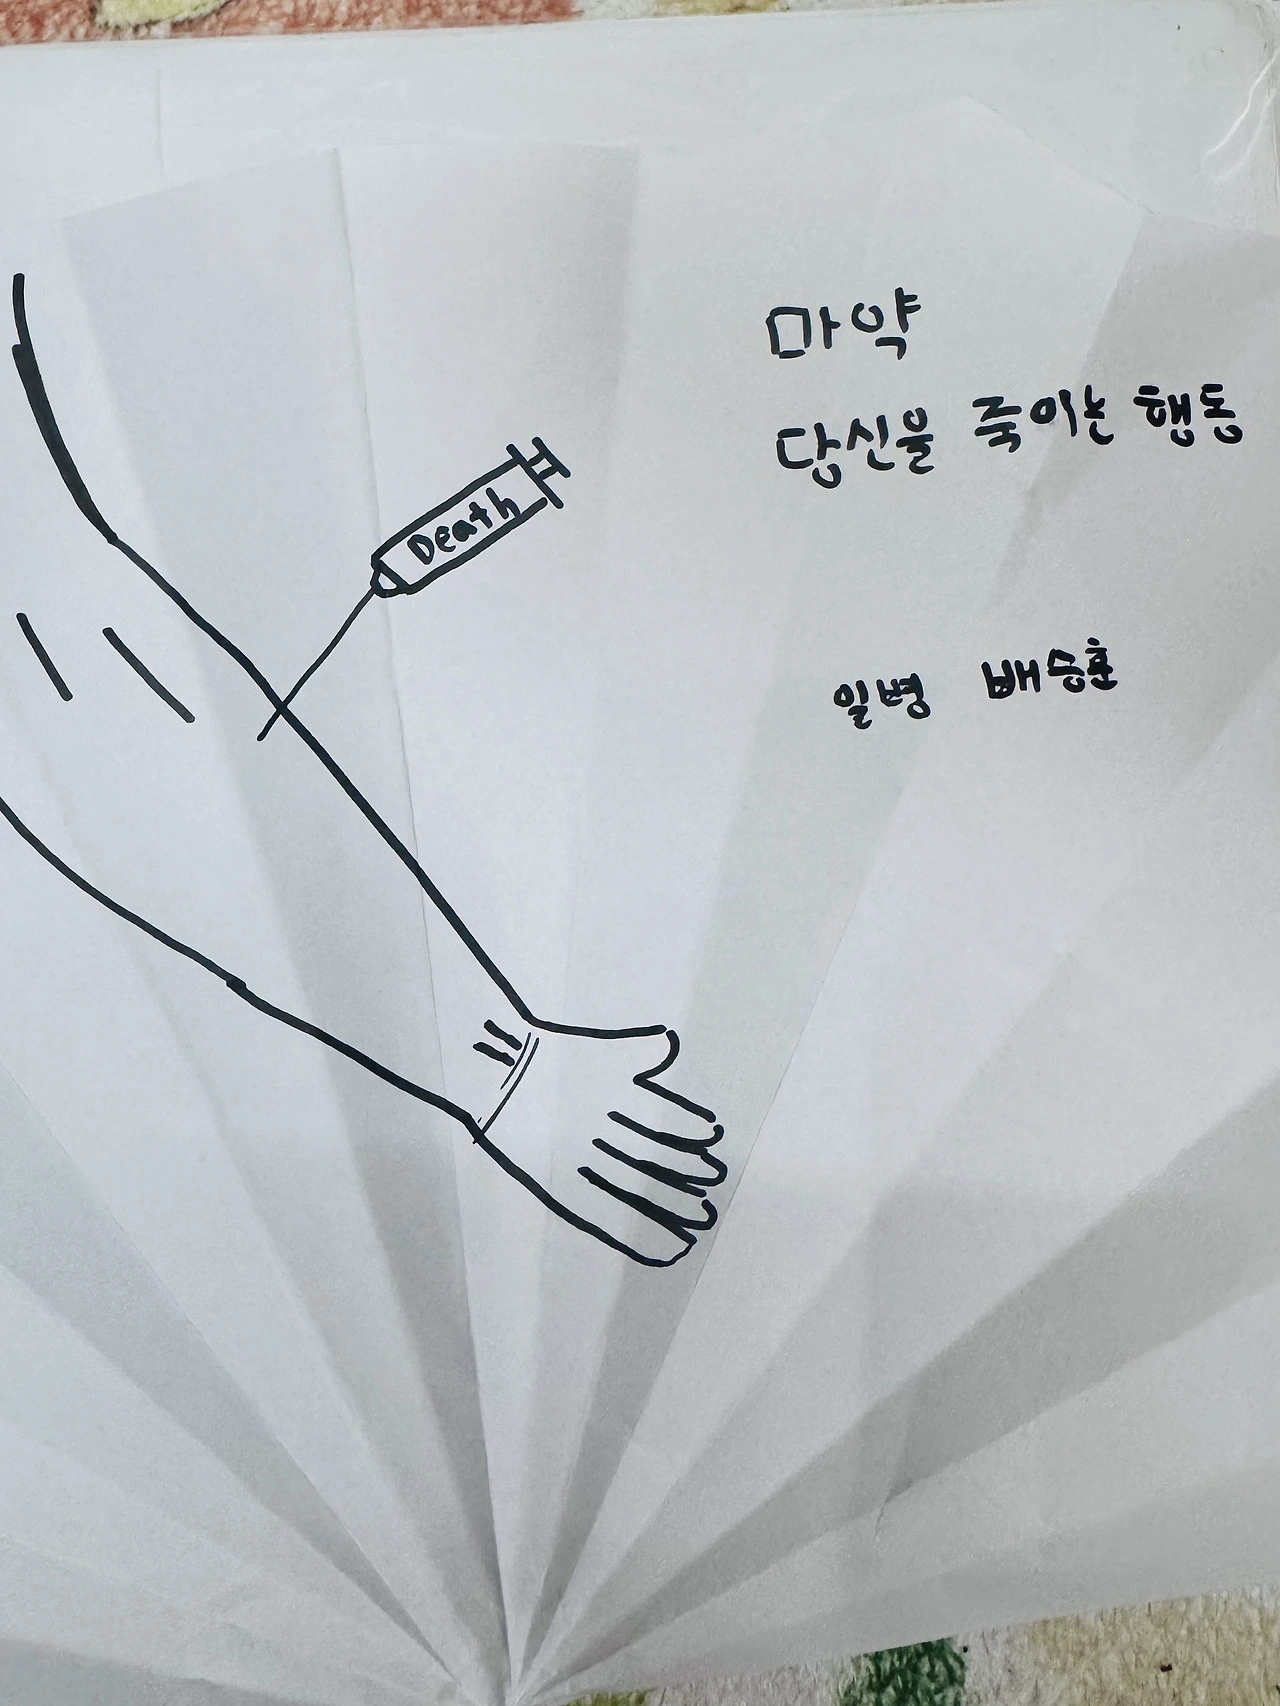 마약
당신을 죽이는 행동
Death
일병 배승훈